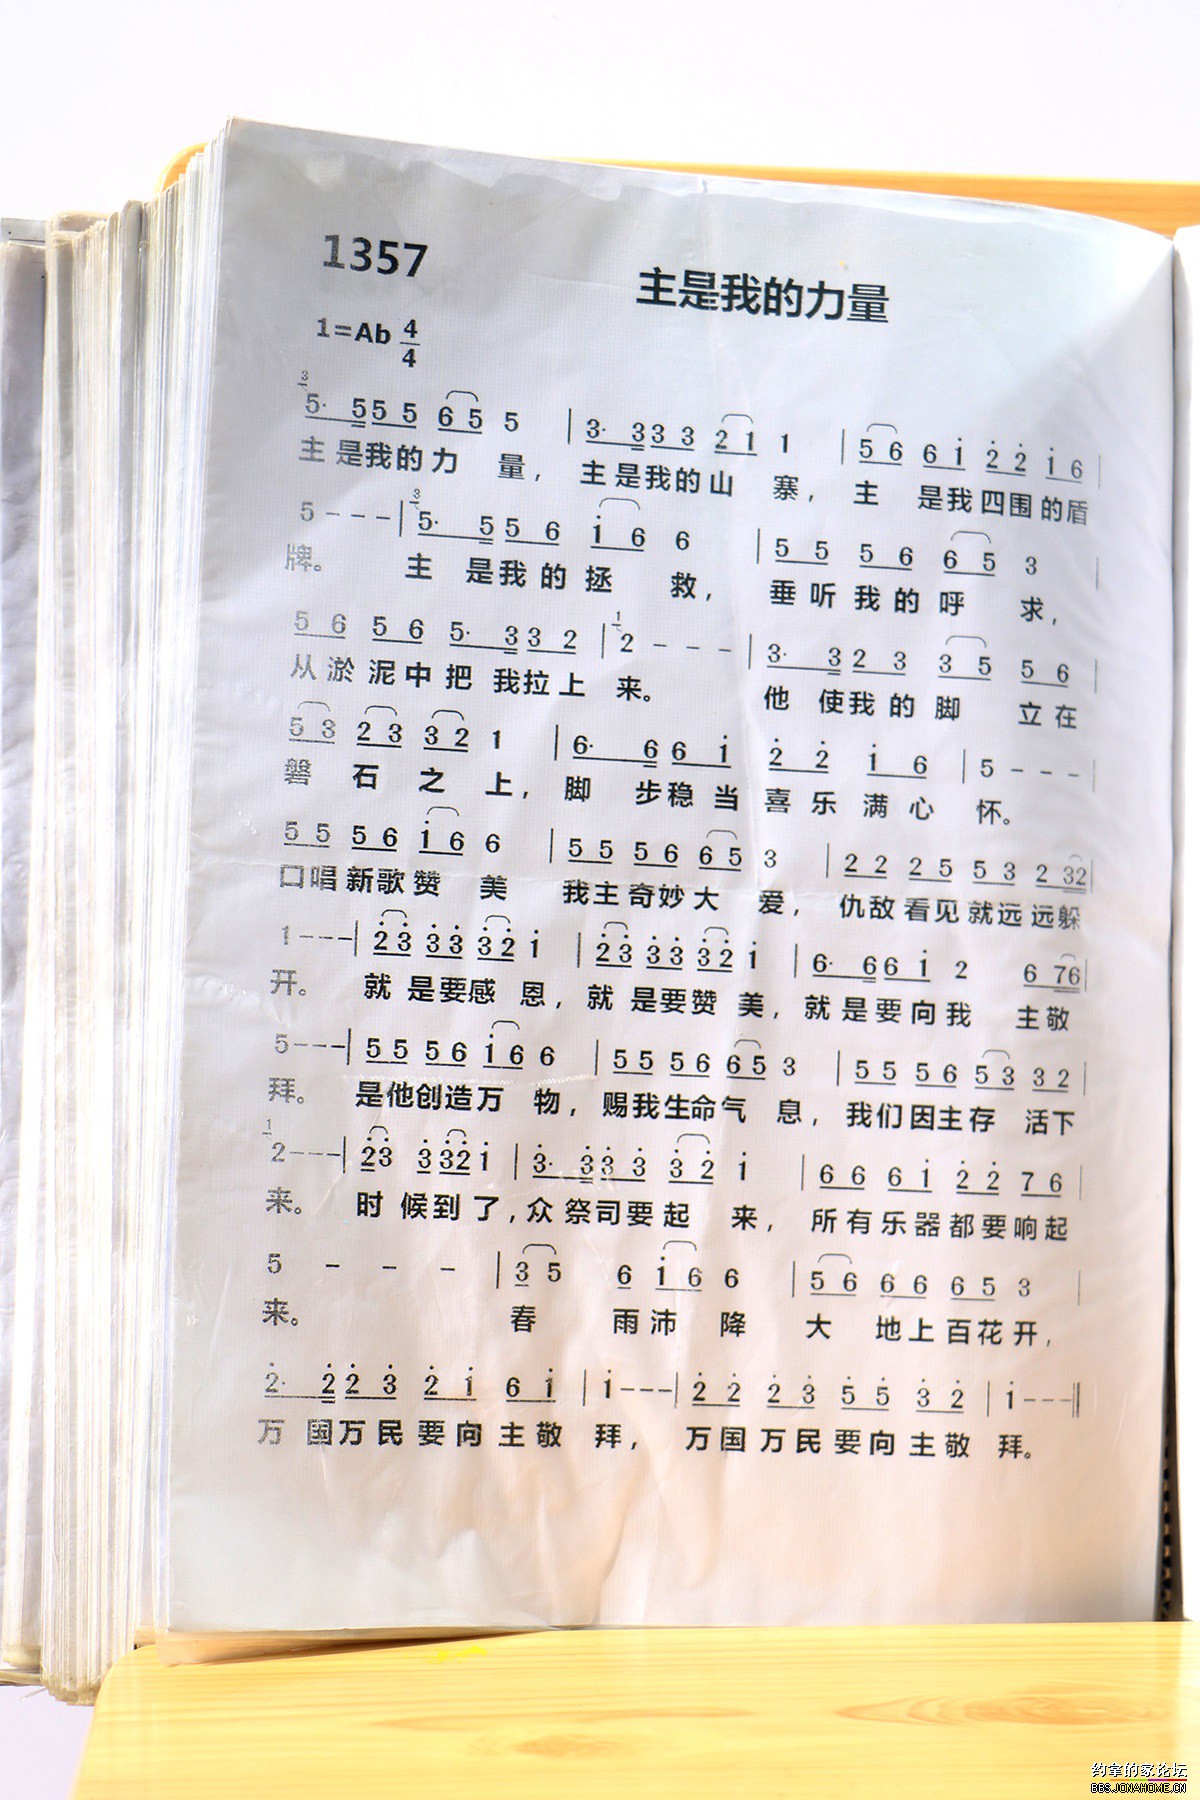 1357
主是我的力量
1=Ab 4/4
5· 5 5 5 6 5 5 | 3· 3 3 3 2 1 1 | 5 6 6 i 2 2 i 6 |
主是我的力 量， 主是我的山 寨， 主 是我四围的盾
5 - - - | 5· 5 5 6 i 6 6 | 5 5 5 6 6 5 3 |
牌。 主 是我的拯 救， 垂听我的呼 求，
5 6 5 6 5· 3 3 2 | 2 - - - | 3· 3 2 3 3 5 5 6 |
从淤泥中把我拉上来。 他使我的脚 立在
5 3 2 3 3 2 1 | 6· 6 6 i 2 2 i 6 | 5 - - - |
磐 石 之 上， 脚 步稳当喜乐满心 怀。
5 5 5 6 i 6 6 | 5 5 5 6 6 5 3 | 2 2 2 5 5 3 2 3 2 |
口唱新歌赞 美 我主奇妙大 爱， 仇敌看见就远远躲
1 - - - | 2 3 3 3 3 2 i | 2 3 3 3 3 2 i | 6· 6 6 i 2 6 7 6 |
开。 就 是要感 恩， 就 是要赞 美， 就是要向我 主敬
5 - - - | 5 5 5 6 i 6 6 | 5 5 5 6 6 5 3 | 5 5 5 6 5 3 3 2 |
拜。 是他创造万 物， 赐我生命气 息， 我们因主存 活下
2 - - - | 2 3 3 3 2 i | 3· 3 3 3 3 2 i | 6 6 6 i 2 2 7 6 |
来。 时 候到了， 众祭司要起 来， 所有乐器都要响起
5 - - - | 3 5 6 i 6 6 | 5 6 6 6 6 5 3 |
来。 春 雨沛 降 大 地上百花开，
2· 2 2 3 2 i 6 i | i - - - | 2 2 2 3 5 5 3 2 | i - - - ‖
万 国万民要向主敬 拜， 万国万民要向主敬 拜。
约拿的家论坛
BBS.JONAHOME.CN